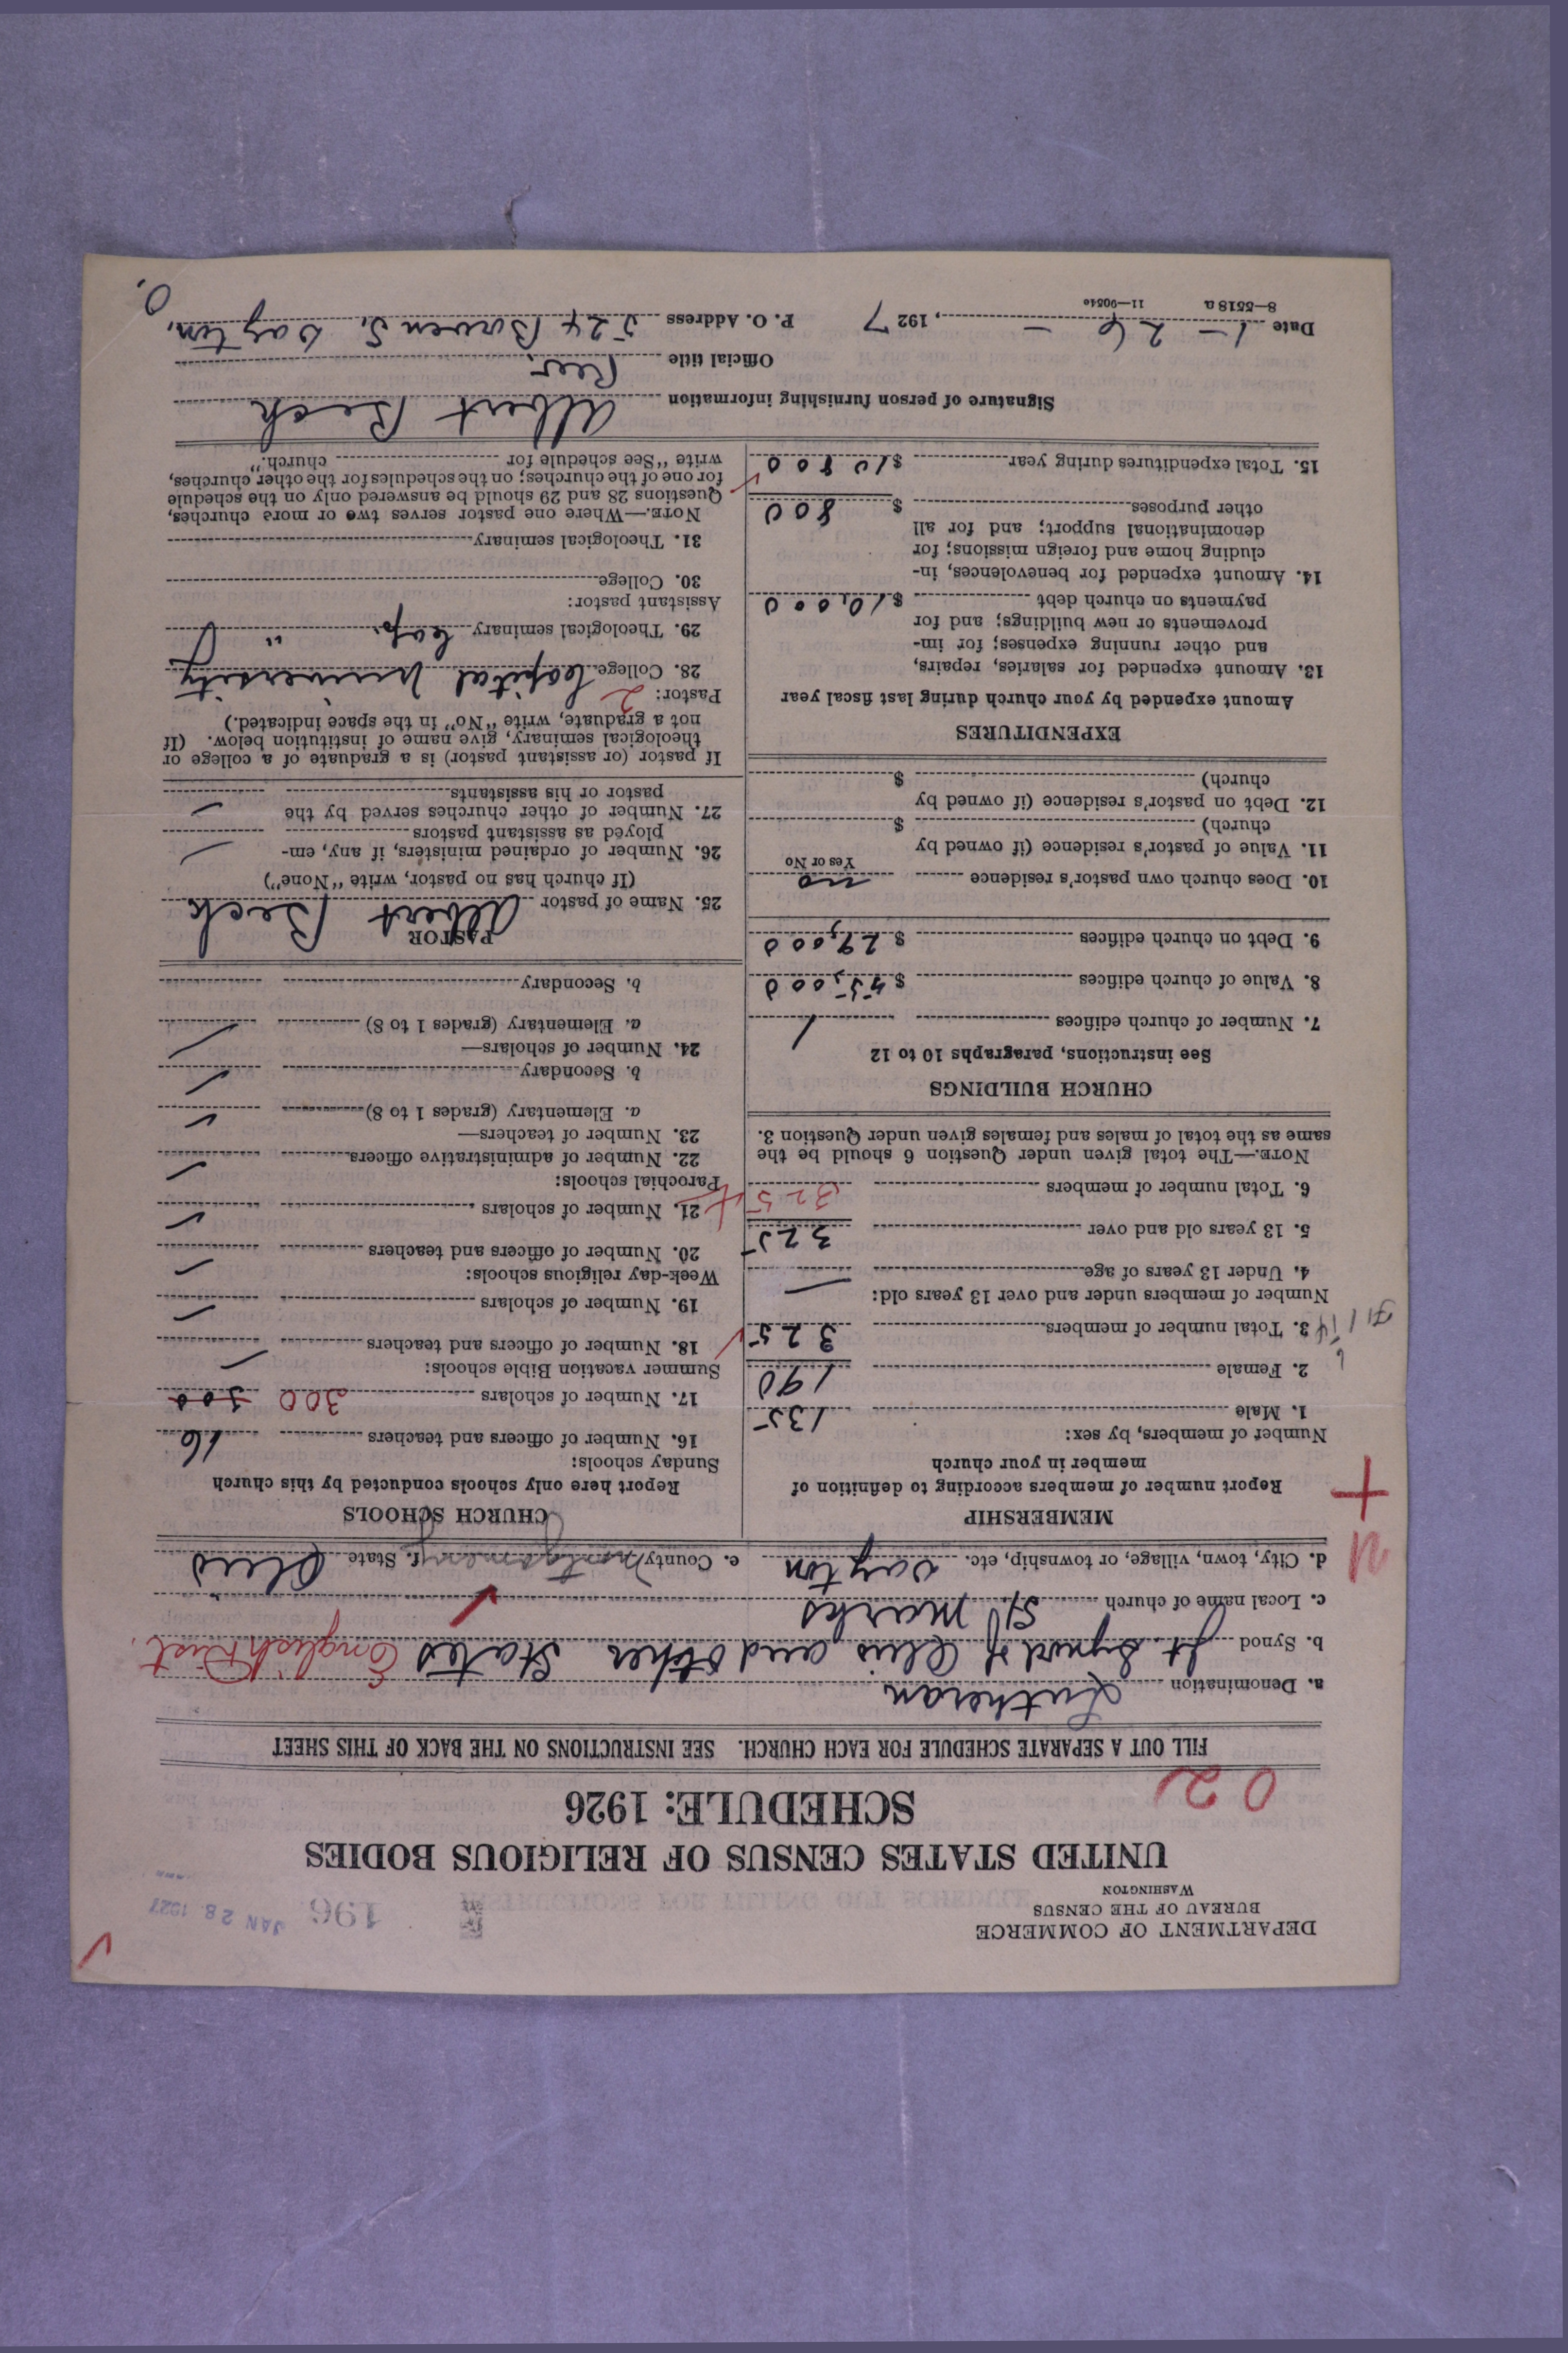 DEPARTMENT OF COMMERCE
BUREAU OF THE CENSUS
WASHINGTON
196
JAN 28 1927
UNITED STATES CENSUS OF RELIGIOUS BODIES
SCHEDULE: 1926
02
FILL OUT A SEPARATE SCHEDULE FOR EACH CHURCH. SEE INSTRUCTIONS ON THE BACK OF THIS SHEET
a. Denomination Lutheran
b. Synod Jt. Synod of Ohio and other States English Dist.
c. Local name of church St Marks
d. City, town, village, or township, etc. Dayton e. County Montgomery f. State Ohio
MEMBERSHIP
Report number of members according to definition of
member in your church
Number of members, by sex:
1. Male 135
2. Female 190
3. Total number of members 325
Number of members under and over 13 years old:
4. Under 13 years of age —
5. 13 years old and over 325
6. Total number of members 325
NOTE.—The total given under Question 6 should be the
same as the total of males and females given under Question 3.
CHURCH BUILDINGS
See instructions, paragraphs 10 to 12
7. Number of church edifices 1
8. Value of church edifices $ 45,000
9. Debt on church edifices $ 29,000
10. Does church own pastor's residence no
Yes or No
11. Value of pastor's residence (if owned by
church) $
12. Debt on pastor's residence (if owned by
church) $
EXPENDITURES
Amount expended by your church during last fiscal year
13. Amount expended for salaries, repairs,
and other running expenses; for im-
provements or new buildings; and for
payments on church debt $ 10,000
14. Amount expended for benevolences, in-
cluding home and foreign missions; for
denominational support; and for all
other purposes $ 800
15. Total expenditures during year $ 10 800
CHURCH SCHOOLS
Report here only schools conducted by this church
Sunday schools:
16. Number of officers and teachers 16
17. Number of scholars 300 300
Summer vacation Bible schools:
18. Number of officers and teachers
19. Number of scholars
Week-day religious schools:
20. Number of officers and teachers
21. Number of scholars
Parochial schools:
22. Number of administrative officers
23. Number of teachers—
a. Elementary (grades 1 to 8)
b. Secondary
24. Number of scholars—
a. Elementary (grades 1 to 8)
b. Secondary
PASTOR
25. Name of pastor Albert Beck
(If church has no pastor, write "None")
26. Number of ordained ministers, if any, em-
ployed as assistant pastors
27. Number of other churches served by the
pastor or his assistants
If pastor (or assistant pastor) is a graduate of a college or
theological seminary, give name of institution below. (If
not a graduate, write "No" in the space indicated.)
Pastor: 2
28. College Capital University
29. Theological seminary Cap. "
Assistant pastor:
30. College
31. Theological seminary
NOTE.—Where one pastor serves two or more churches,
Questions 28 and 29 should be answered only on the schedule
for one of the churches; on the schedules for the other churches,
write "See schedule for church."
Signature of person furnishing information Albert Beck
Official title Rev.
Date 1-26-, 1927 P. O. Address 524 Bowen S. Dayton, O.
8—5518 a 11—9054c